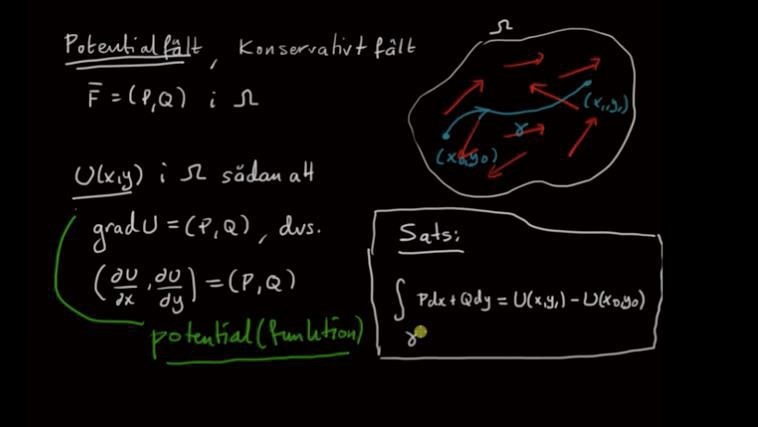 Potentialfält, Konservativt fält
F̅ = (P,Q) i Ω
U(x,y) i Ω sådan att
grad U = (P,Q), dvs.
(∂U/∂x, ∂U/∂y) = (P,Q)
potential(funktion)
Ω
(x₁,y₁)
γ
(x₀,y₀)
Sats:
∫ Pdx + Qdy = U(x,y₁) - U(x₀,y₀)
γ